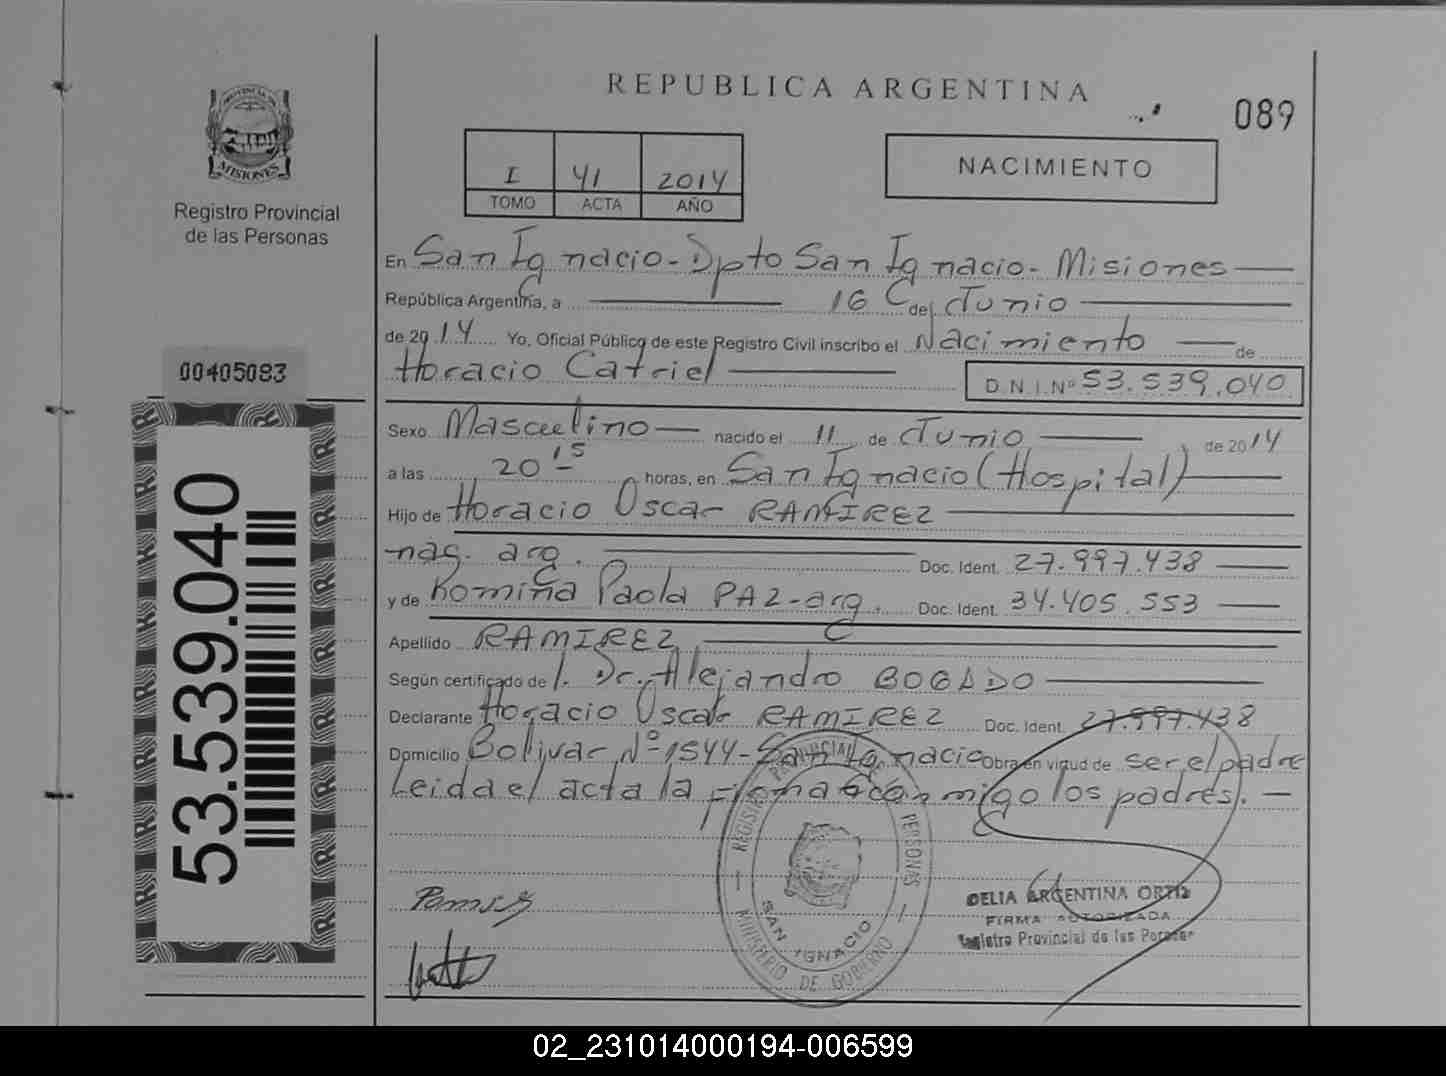 REPUBLICA ARGENTINA
089
PROVINCIA DE
MISIONES
Registro Provincial
de las Personas
I 41 2014
TOMO ACTA AÑO
NACIMIENTO
En San Ignacio - Dpto San Ignacio - Misiones
República Argentina, a 16 de Junio
de 2014 Yo, Oficial Público de este Registro Civil inscribo el Nacimiento de
Horacio Catriel D.N.I.Nº 53.539.040
00405083
53.539.040
Sexo Masculino nacido el 11 de Junio de 2014
a las 20 15 horas, en San Ignacio (Hospital)
Hijo de Horacio Oscar RAMIREZ
nac. arg. Doc. Ident. 27.997.438
y de Romina Paola PAZ - arg. Doc. Ident. 34.405.553
Apellido RAMIREZ
Según certificado de l. Dr. Alejandro BOGADO
Declarante Horacio Oscar RAMIREZ Doc. Ident. 27.997.438
Domicilio Bolivar Nº 1544 - San Ignacio Obra en virtud de ser el padre
Leida el acta la firman conmigo los padres. -
REGISTRO PROVINCIAL DE LAS PERSONAS
MINISTERIO DE GOBIERNO
SAN IGNACIO
DELIA ARGENTINA ORTIZ
FIRMA AUTORIZADA
Registro Provincial de las Personas
02_231014000194-006599